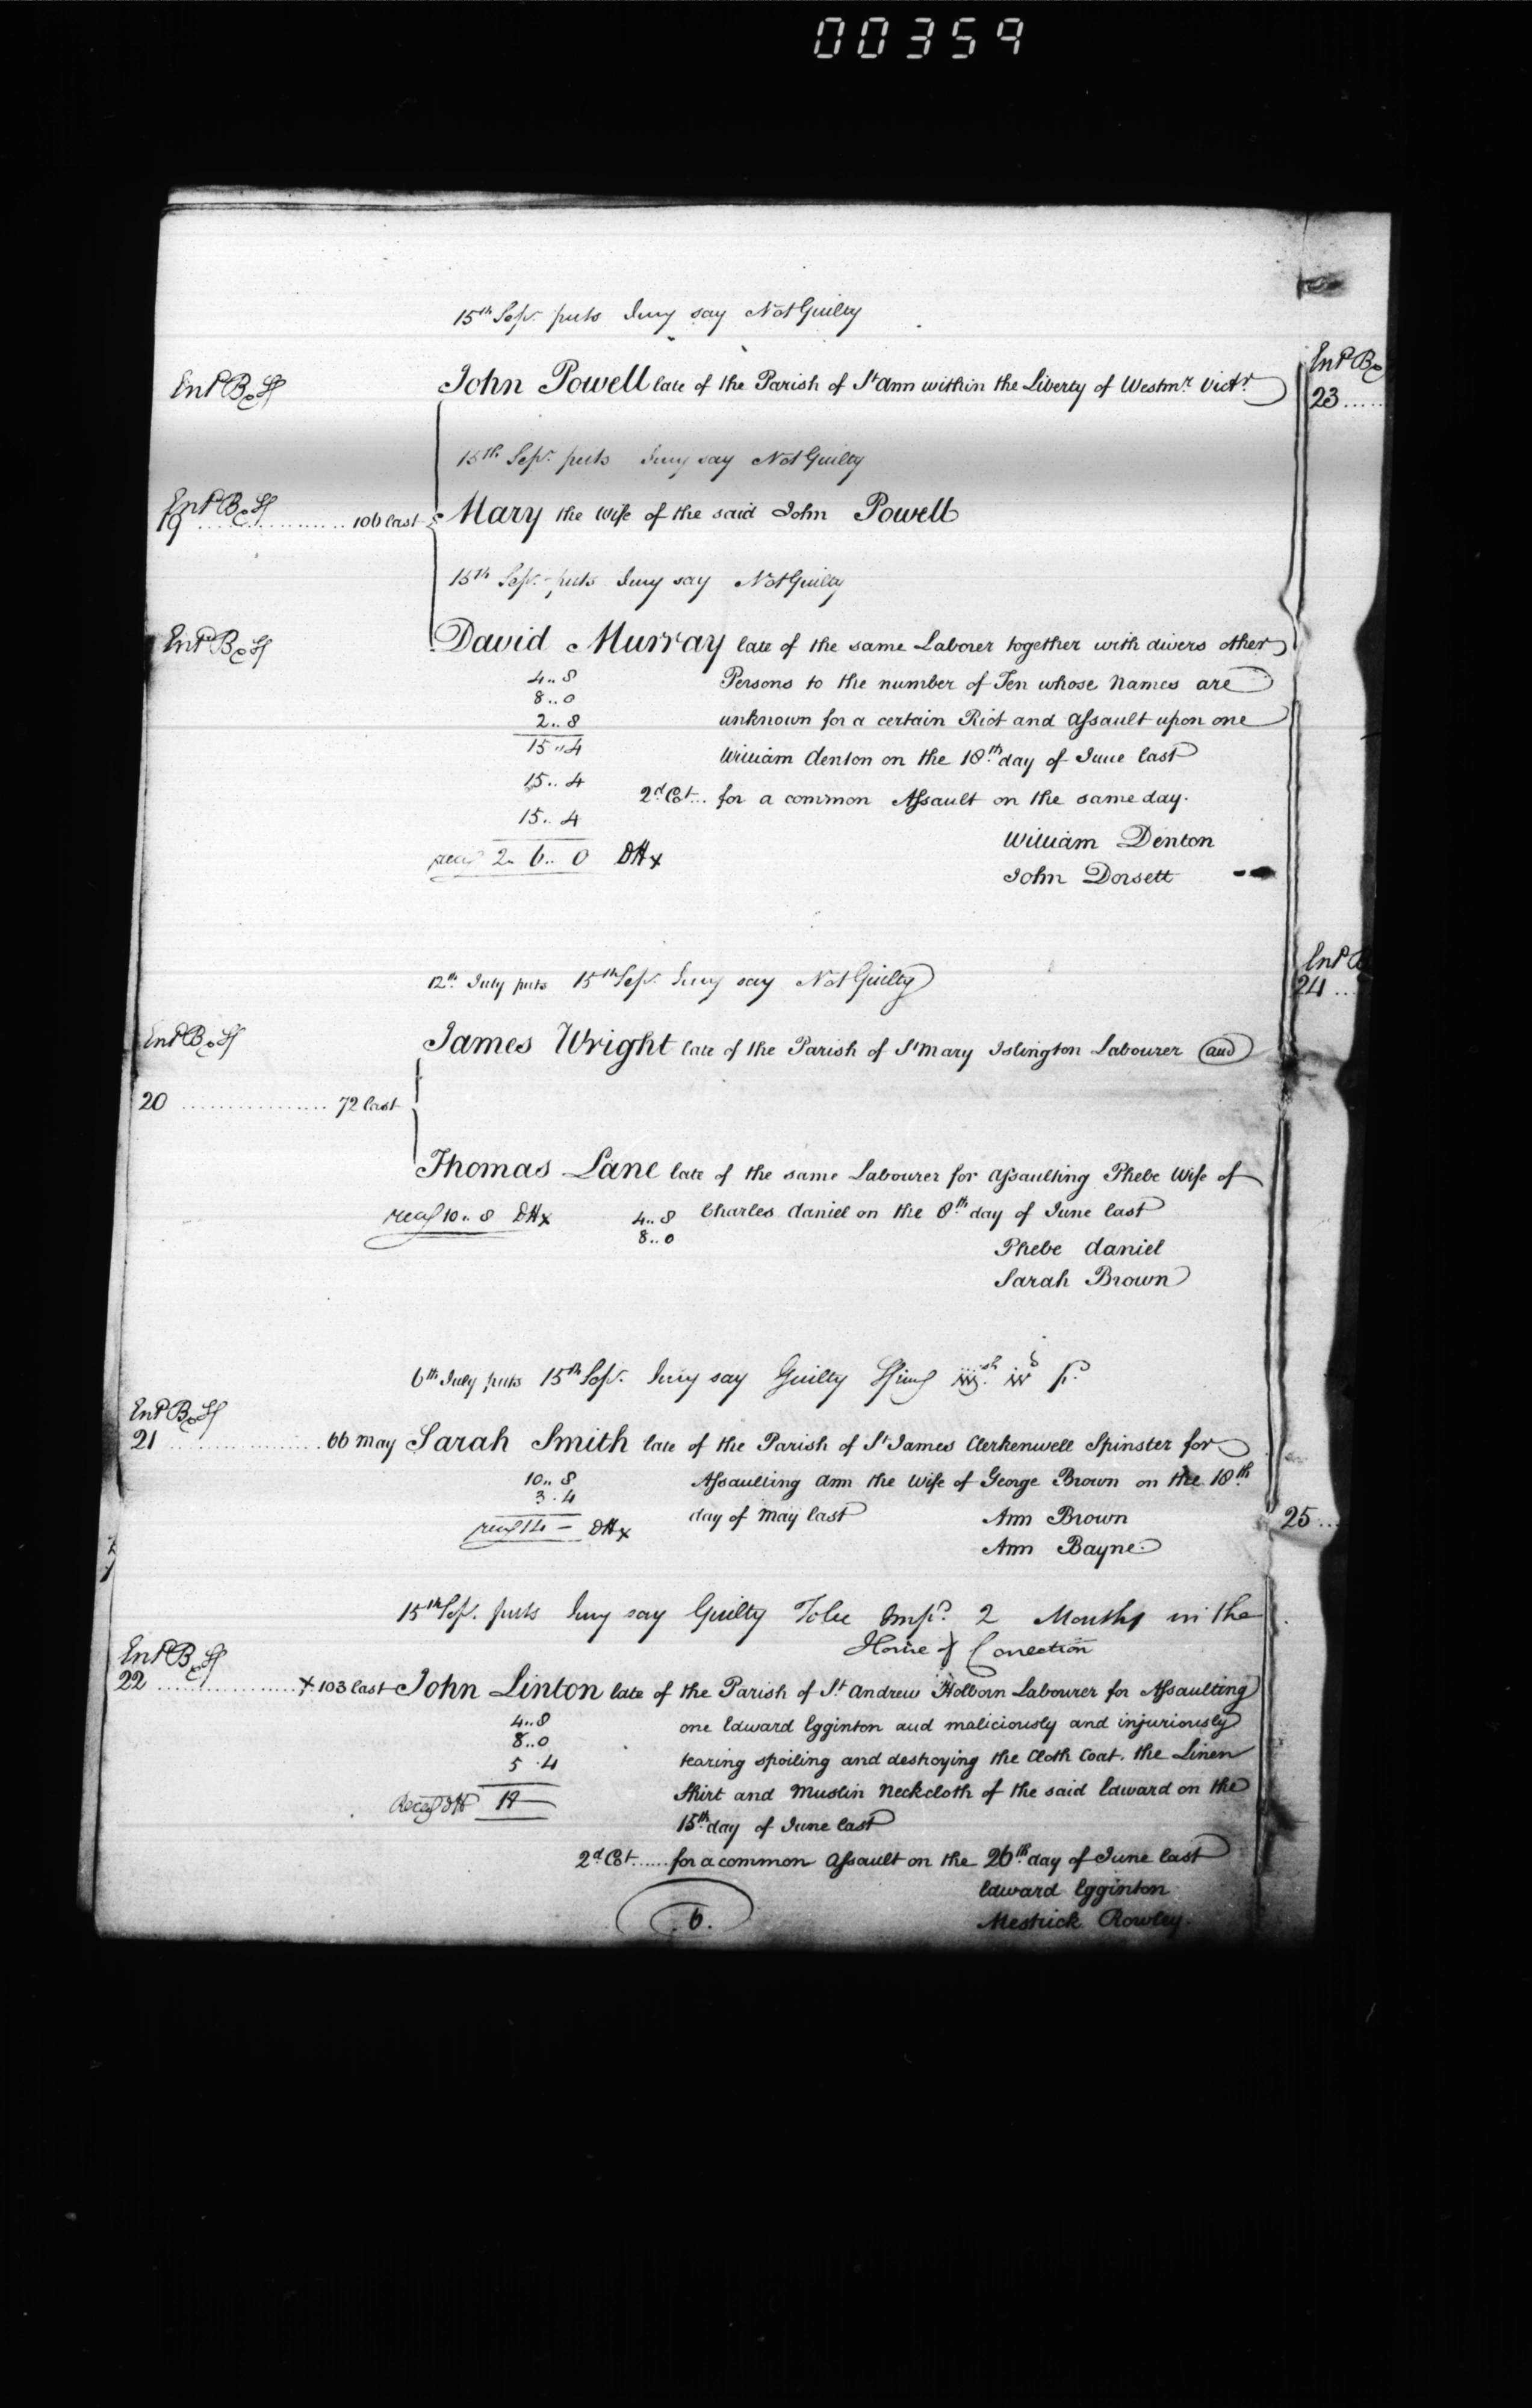 00359
15th Sepr. puts Jury say Not Guilty
Entd B
John Powell late of the Parish of St Ann within the Liberty of Westmr. Victr.
Entd B
23 .....
15th Sepr. puts Jury say Not Guilty
Entd B
19 .................. 106 last Mary the Wife of the said John Powell
15th Sepr. puts Jury say Not Guilty
Entd B
David Murray late of the same Laborer together with divers other
4..8 Persons to the number of Ten whose Names are
8..0
2..8 unknown for a certain Riot and Assault upon one
15..4
William Denton on the 18th day of June last
15..4
2d Cot... for a common Assault on the same day.
15..4
William Denton
2.. 6.. 0 DHx
John Dorsett
12th July puts 15th Sepr. Jury say Not Guilty
Entd B
24 ...
Entd B
James Wright late of the Parish of St Mary Islington Labourer and
20 ................ 72 last
Thomas Lane late of the same Labourer for Assaulting Phebe Wife of
recd 10.. 8 DHx 4..8 Charles Daniel on the 8th day of June last
8..0
Phebe Daniel
Sarah Brown
6th July puts 15th Sepr. Jury say Guilty
Entd B
21 .................. 66 May Sarah Smith late of the Parish of St James Clerkenwell Spinster for
10..8 Assaulting Ann the Wife of George Brown on the 18th
3.4
day of May last Ann Brown
recd 14 - DHx
25 ...
Ann Bayne
15th Sepr. puts Jury say Guilty To be Impd. 2 Months in the
House of Correction
Entd B
22 ................. x 103 last John Linton late of the Parish of St Andrew Holborn Labourer for Assaulting
4..8 one Edward Egginton and maliciously and injuriously
8..0
5.4 tearing spoiling and destroying the Cloth Coat. the Linen
Shirt and Muslin Neckcloth of the said Edward on the
Recd DH 18 -
15th day of June last
2d Cot...... for a common Assault on the 26th day of June last
Edward Egginton
6.
Mestrick Rowley.